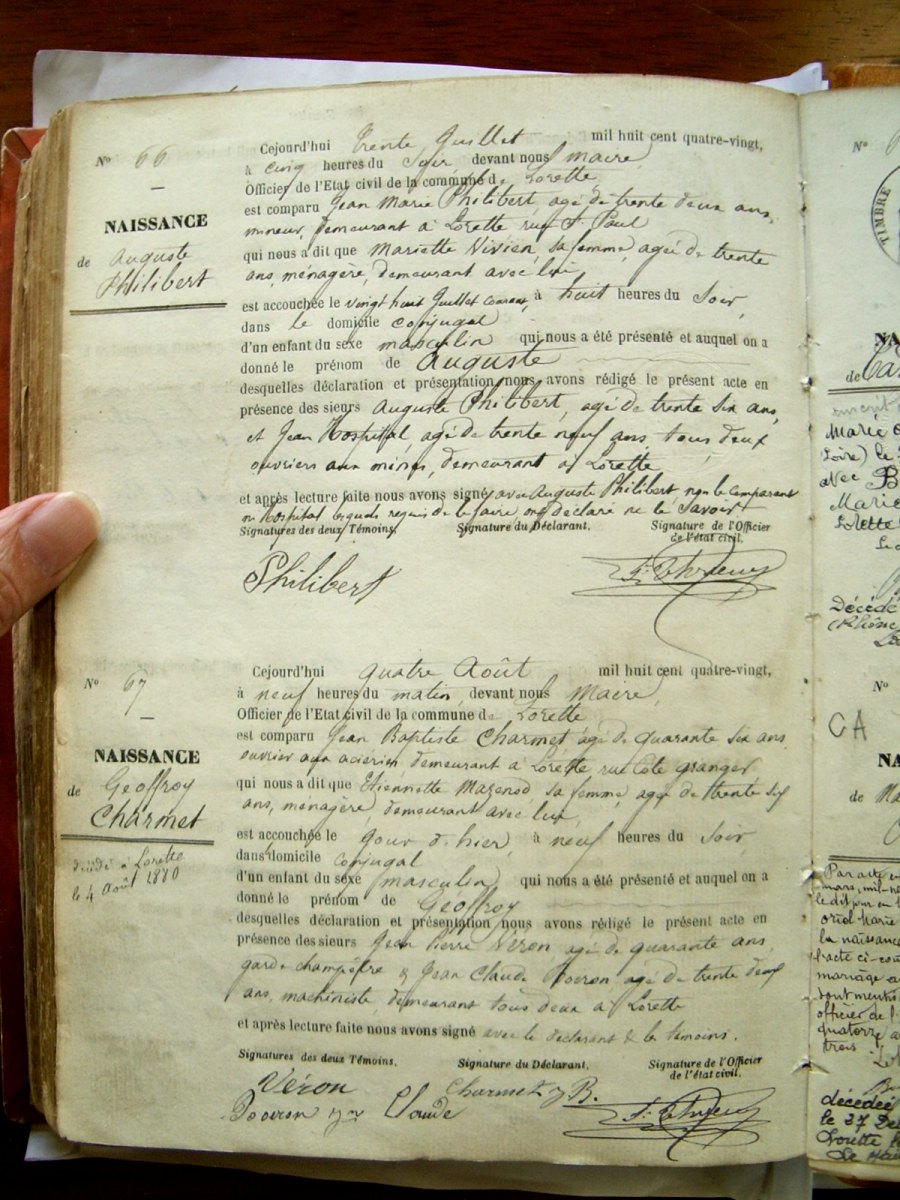 Nº 66
NAISSANCE
de Auguste
Philibert
Cejourd'hui trente Juillet mil huit cent quatre-vingt,
à cinq heures du soir devant nous Maire
Officier de l'Etat civil de la commune de Lorette
est comparu Jean Marie Philibert, agé de trente deux ans,
mineur, demeurant à Lorette rue St Paul
qui nous a dit que Mariette Vivien, sa femme, agée de trente
ans, ménagère, demeurant avec lui,
est accouchée le vingt huit Juillet courant, à huit heures du soir,
dans le domicile conjugal
d'un enfant du sexe masculin qui nous a été présenté et auquel on a
donné le prénom de Auguste
desquelles déclaration et présentation nous avons rédigé le présent acte en
présence des sieurs Auguste Philibert, agé de trente six ans,
et Jean Hospital, agé de trente neuf ans, tous deux
ouvriers aux mines, demeurant à Lorette
et après lecture faite nous avons signé avec Auguste Philibert, non le comparant
ni Hospital lesquels requis de le faire ont déclaré ne le savoir
Signatures des deux Témoins. Signature du Déclarant. Signature de l'Officier
de l'état civil.
Philibert
Nº 67
NAISSANCE
de Geoffroy
Charmet
décédé à Lorette
le 4 Août 1880
Cejourd'hui quatre Août mil huit cent quatre-vingt,
à neuf heures du matin, devant nous Maire,
Officier de l'Etat civil de la commune de Lorette
est comparu Jean Baptiste Charmet agé de quarante six ans
ouvrier aux aciéries, demeurant à Lorette, rue Côte granger
qui nous a dit que Etiennette Mazenod sa femme, agée de trente six
ans, ménagère, demeurant avec lui,
est accouchée le jour d'hier à neuf heures du soir
dans domicile conjugal
d'un enfant du sexe masculin qui nous a été présenté et auquel on a
donné le prénom de Geoffroy
desquelles déclaration et présentation nous avons rédigé le présent acte en
présence des sieurs Jean Pierre Véron, agé de quarante ans,
garde champêtre & Jean Claude agé de trente deux
ans, machiniste, demeurant tous deux à Lorette
et après lecture faite nous avons signé avec le déclarant & les témoins.
Signatures des deux Témoins. Signature du Déclarant. Signature de l'Officier
de l'état civil.
Véron Charmet J B.
Claude
Nº
TIMBRE
NA
de
Marie
Loire) le
avec B
Marie
Lorette
Décédé
(Rhône
Nº
CA
NA
de Ma
C
Par acte
mars, mil-ne
le dit jour en
oriol Marie
la naissance
l'acte ci-con
mariage a
sont menti
officier de l'
quatorze a
trois
décédée
le 27 De
Lorette
Le Mai